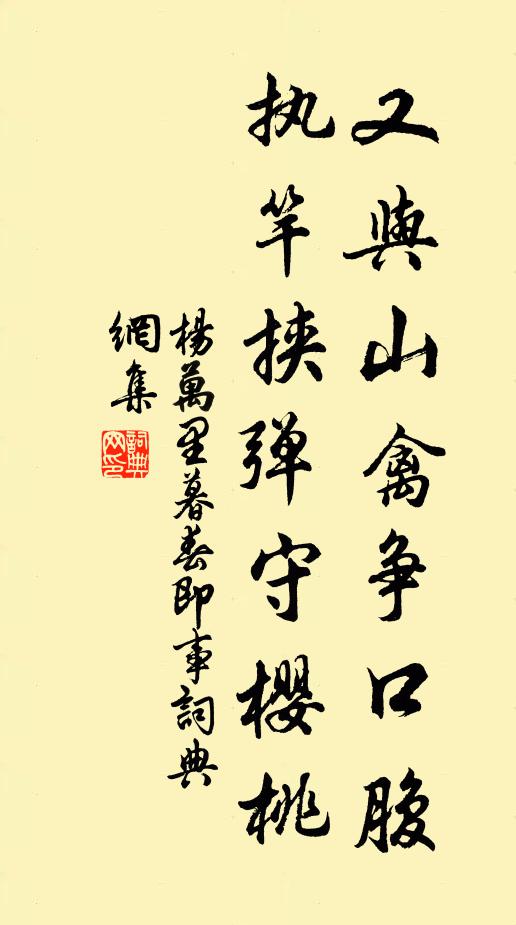 又與山禽争口腹
执竿挟弹守櫻桃
楊萬里暮春即事詞典
網集
詞典网印